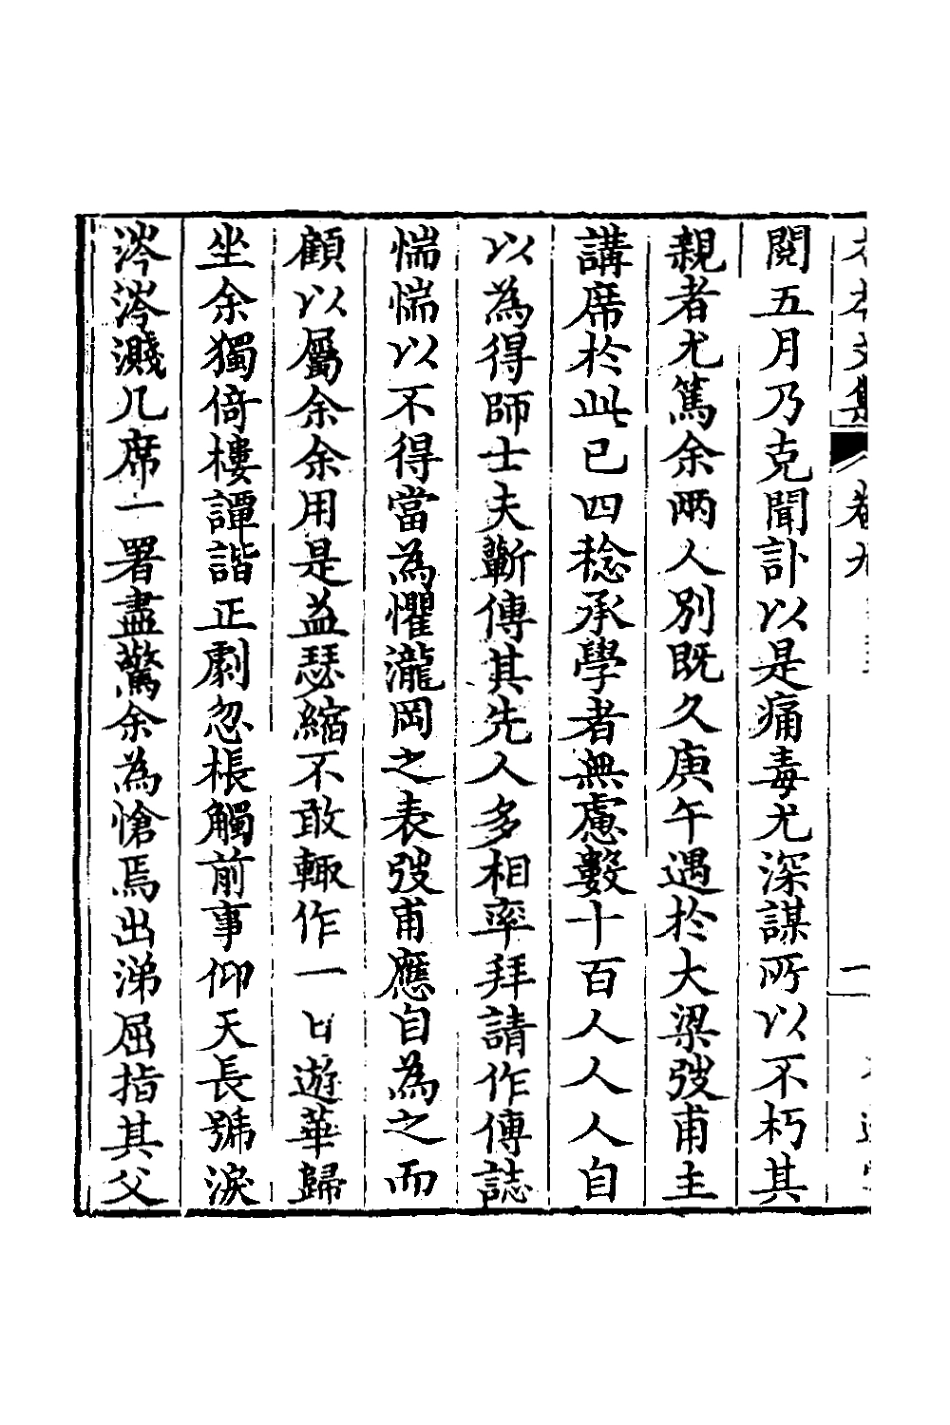 閱五月乃克聞訃以是痛毒尤深謀所以不朽其
親者尤篤余兩人別既久庚午遇於大梁弢甫主
講席於此已四稔承學者無慮數十百人人人自
以為得師士夫蘄傳其先人多相率拜請作傳誌
惴惴以不得當為懼瀧岡之表弢甫應自為之而
顧以屬余余用是益瑟縮不敢輙作一日遊華歸
坐余獨倚樓譚諧正劇忽棖觸前事仰天長號淚
涔涔濺几席一署盡驚余為愴焉出涕屈指其父